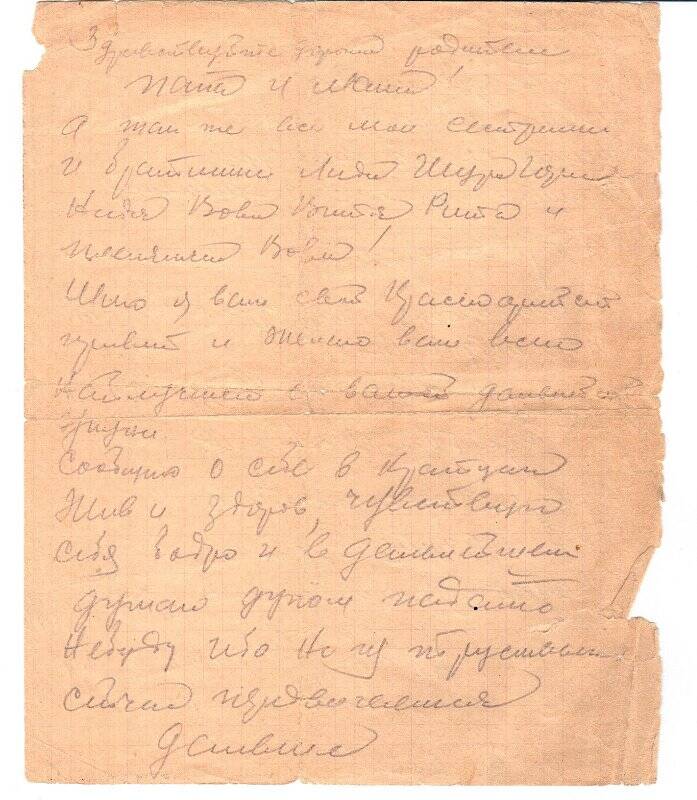 Здравствуйте дорогие родители
папа и мама!
А так же все мои сестренки
и братишки Лида Шура
Надя Вова Витя Рита и
племянник Вова!
Шлю я вам свой Красноармейский
привет и желаю вам всего
наилучшего в вашей дальнейшей
жизни
Сообщаю о себе в кратце
Жив и здоров, чувствую
себя бодро и в дальнейшем
думаю духом падать
небуду ибо
сейчас передвигаемся
дальше